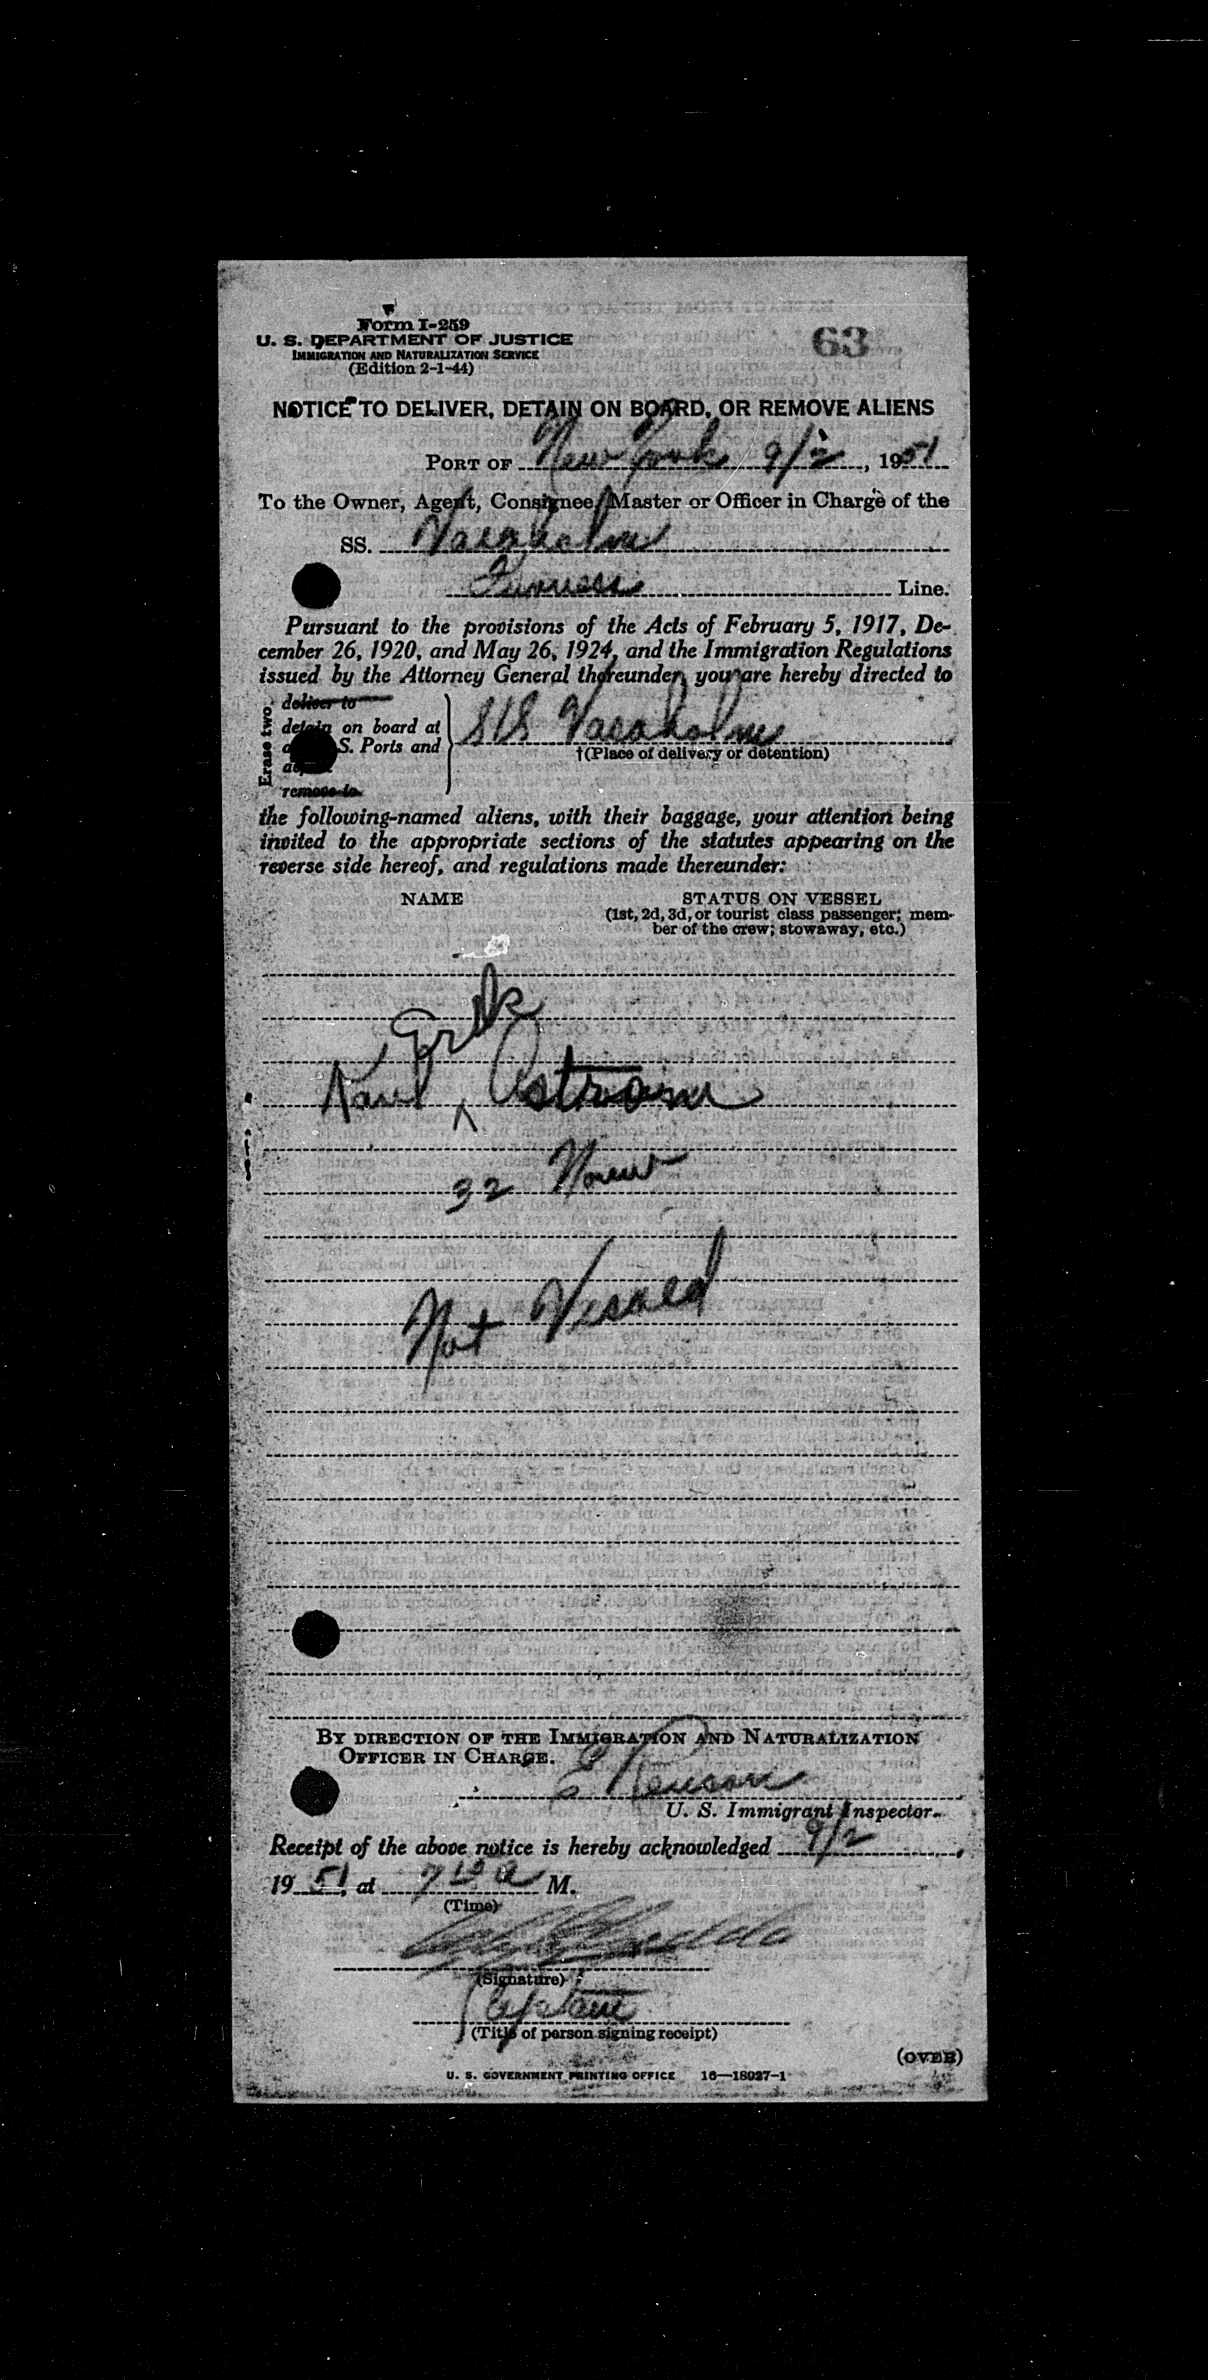 Form I-259
U. S. DEPARTMENT OF JUSTICE
IMMIGRATION AND NATURALIZATION SERVICE
(Edition 2-1-44)
63
NOTICE TO DELIVER, DETAIN ON BOARD, OR REMOVE ALIENS
PORT OF New York 9/2, 1951
To the Owner, Agent, Consignee, Master or Officer in Charge of the
SS. Vasaholm
Furness Line.
Pursuant to the provisions of the Acts of February 5, 1917, De-
cember 26, 1920, and May 26, 1924, and the Immigration Regulations
issued by the Attorney General thereunder, you are hereby directed to
Erase two
deliver to
detain on board at
S. Ports and
remove to
S/S Vasaholm
†(Place of delivery or detention)
the following-named aliens, with their baggage, your attention being
invited to the appropriate sections of the statutes appearing on the
reverse side hereof, and regulations made thereunder:
NAME
STATUS ON VESSEL
(1st, 2d, 3d, or tourist class passenger; mem-
ber of the crew; stowaway, etc.)
Erik
Karl ^ Ostrom
32
Not Visaed
BY DIRECTION OF THE IMMIGRATION AND NATURALIZATION
OFFICER IN CHARGE.
E
U. S. Immigrant Inspector.
Receipt of the above notice is hereby acknowledged 9/2,
1951, at 7 10 a M.
(Time)
(Signature)
Captain
(Title of person signing receipt)
(OVER)
U. S. GOVERNMENT PRINTING OFFICE 16—18027-1